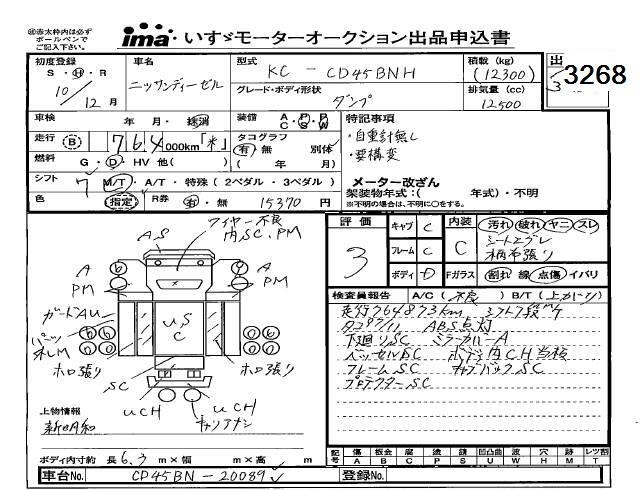 ㊟赤太枠内は必ずボールペンでご記入下さい。
ima いすゞモーターオークション出品申込書
初度登録 S・H・R 10/12月
車名 ニッサンディーゼル
型式 KC-CD45BNH
積載(kg) (12300)
出
3268
グレード・ボディ形状 ダンプ
排気量(cc) 12500
車検 年 月・抹消
装備 A・P・P C S W
特記事項
走行 B 764,000km「*」
タコグラフ 有・無 別体 ( 年 月)
・自重計無し
燃料 G・D・HV 他( )
・要構変
シフト 7 M/T・A/T・特殊(2ペダル・3ペダル)
メーター改ざん
架装物年式:( 年式)・不明
※不明の場合は、不明に○をする。
色 指定 R券 有・無 15370円
評価 3
キャブ C
フレーム C
ボディ D
内装 C
汚れ 破れ ヤニ スレ
シートエプレ
Fガラス 割れ 線 点傷・イバリ
検査員報告 A/C(不良) B/T(上カバー)
走行764873km シフト7段MT
ABS点灯
下廻りSC ミラーカバーA
ベッセルBC
フレームSC キャブバックSC
プロテクターSC
ワイヤー不良
内SC、PM
AS
A
PM
A
PM
ガードAU
USC
ホロ張り
ホロ張り
SC
UCH
UCH
上物情報
新明和
ボディ内寸約 長6.3m×幅 m×高 m
記号 傷A 板金B 腐C 塗P 錆S 凹凸曲U 波W 穴H 跡M レツ割T
車台No. CD45BN-20089
登録No.